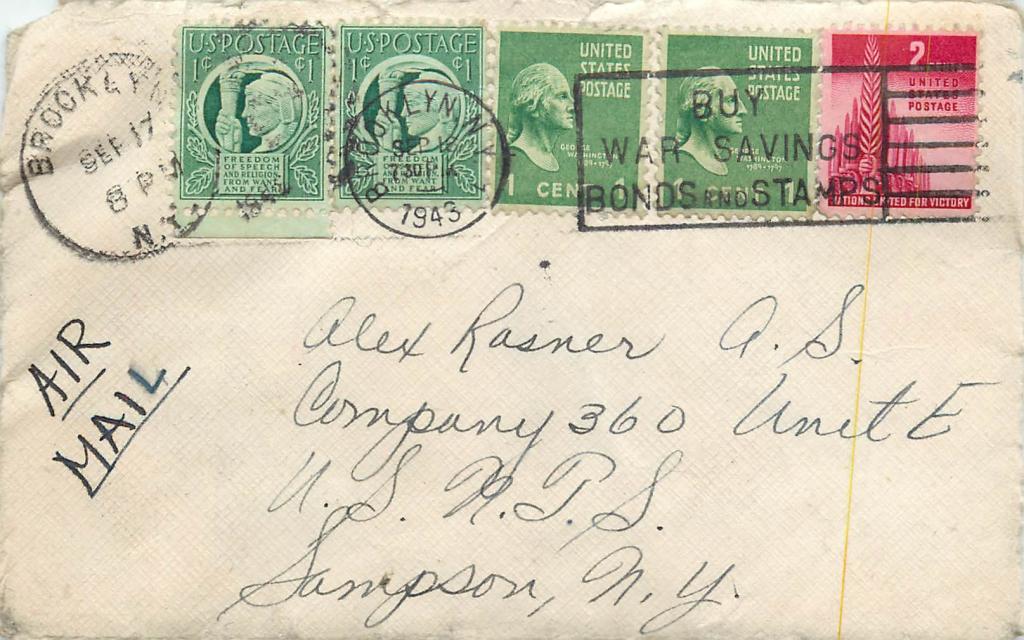 BROOKLYN
SEP 17
8 PM
N.Y.
U·S·POSTAGE
1¢ 1¢
FREEDOM
OF SPEECH
AND RELIGION,
FROM WANT
AND FEAR
U·S·POSTAGE
1¢ 1¢
FREEDOM
OF SPEECH
AND RELIGION,
FROM WANT
AND FEAR
BROOKLYN, N.Y.
SEP
1943
UNITED
STATES
POSTAGE
GEORGE
WASHINGTON
1789-1797
1 CENT
UNITED
STATES
POSTAGE
GEORGE
WASHINGTON
1789-1797
1 CENT 1
2
UNITED
STATES
POSTAGE
FOR VICTORY
BUY
WAR SAVINGS
BONDS AND STAMPS
AIR
MAIL
Alex Rasner A. S.
Company 360 Unit E
U. S. N. T. S.
Sampson, N. Y.